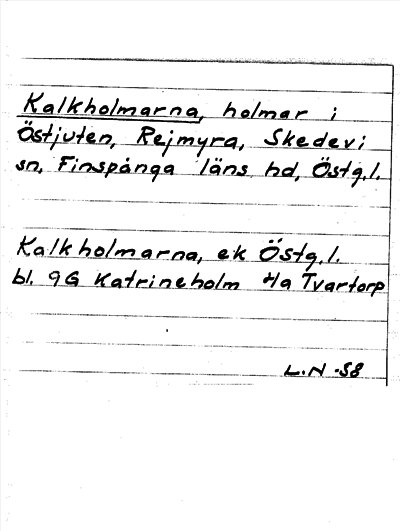 Kalkholmarna, holmar i
Östjuten, Rejmyra, Skedevi
sn, Finspånga läns hd, Östg.l.
Kalkholmarna, ek Östg.l.
bl. 9G Katrineholm Tvartorp
L.N -58